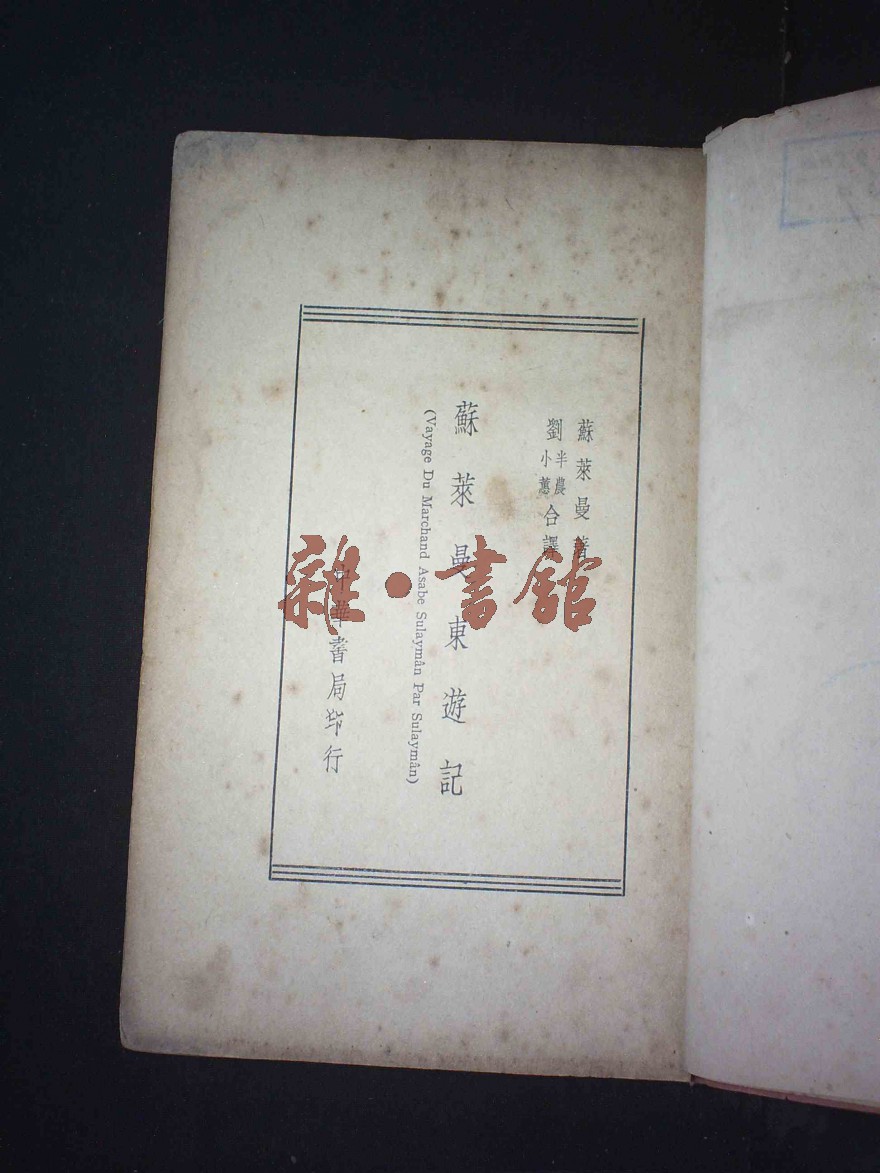 蘇萊曼著
劉半農
小蕙合譯
蘇萊曼東遊記
(Vayage Du Marchand Asabe Sulaymân Par Sulaymân)
中華書局印行
雜·書館